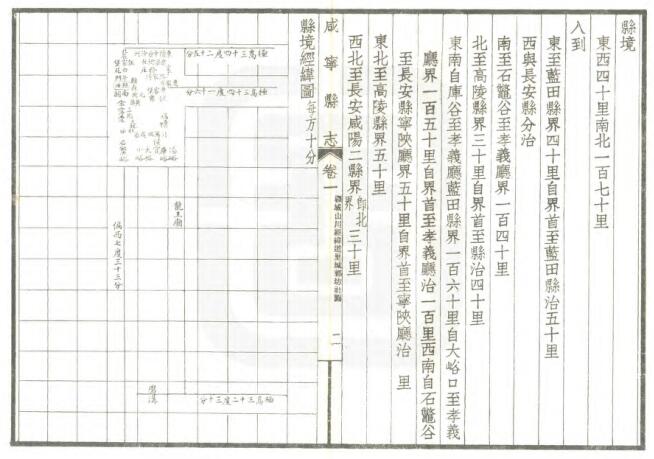 縣境
東西四十里南北一百七十里
入到
東至藍田縣界四十里自界首至藍田縣治五十里
西與長安縣分治
南至石鼈谷至孝義廳界一百四十里
北至高陵縣界三十里自界首至縣治四十里
東南自庫谷至孝義廳藍田縣界一百六十里自大峪口至孝義
廳界一百五十里自界首至孝義廳治一百里西南自石鼈谷
至長安縣寧陝廳界五十里自界首至寧陝廳治 里
東北至高陵縣界五十里
西北至長安咸陽二縣界 即北界 三十里
咸寧縣志 卷一 疆域山川經緯道里城郭坊社圖 二
縣境經緯圖 每方十分
極高三十四度二十五分
極高三十四度一十六分
龍王廟
偏西七度三十三分
極高三十三度三十分